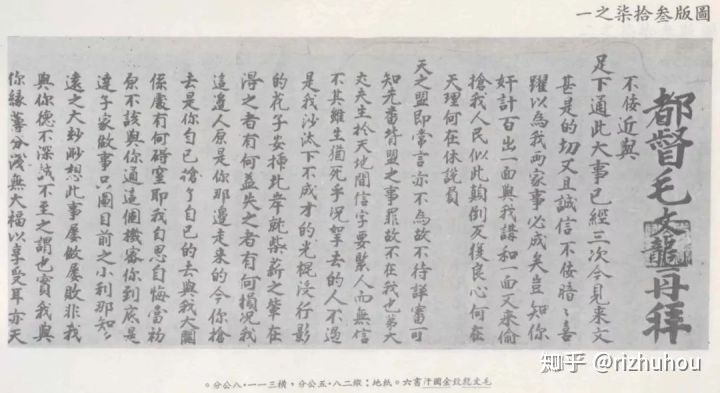 圖版叁拾柒之一
都督毛文龍再拜
不佞近與
足下通此大事已經三次今見來文
甚是的切又且誠信不佞暗〻喜
躍以為我兩家事必成矣豈知你
奸計百出一面與我講和一面又來偷
搶我人民似此顛倒反後良心何在
天理何在休說負
天之盟即常言亦不為故不待詳審可
知先番背盟之事罪故不在我也弟大
丈夫生於天地間信字要緊人而無信
不其雖生猶死乎況拏去的人不過
是我沙汰下不成才的光棍沒行影
的花子妄插此岸能柴薪之輩在
得之者有何益失之者有何損況我
這邊人原是你那邊走來的今你搶
去是你自己搶了自己的去與我大關
係處有何碍窒耶我自思自悔當初
原不該與你通這個機密你到底是
達子家做事只圖目前之小利那知〻
遠之大妙耶想此事屢做屢敗非我
與你德不深誠不至之謂也實我與
你緣薄分淺無大福以享受耳亦天
毛文龍致金國汗書六。紙地：縱二八.五公分，橫三一一.八公分。
知乎 @rizhuhou